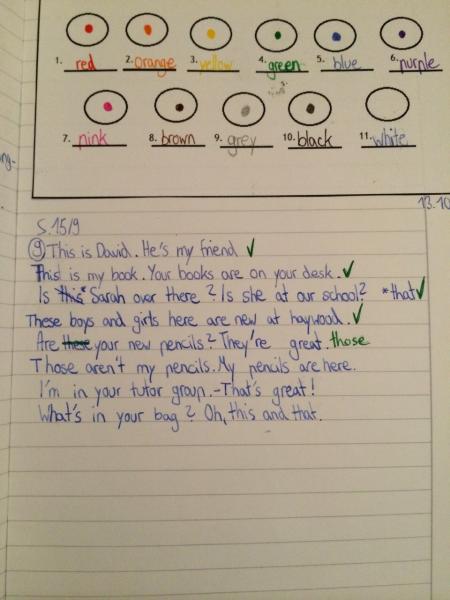 1. red 2. orange 3. yellow 4. green 5. blue 6. purple
7. pink 8. brown 9. grey 10. black 11. white
13.10
S. 15/9
9 This is David. He's my friend ✓
This is my book. Your books are on your desk. ✓
Is this* Sarah over there? Is she at our school? *that ✓
These boys and girls here are new at haywood. ✓
Are these your new pencils? They're great. those
Those aren't my pencils. My pencils are here.
I'm in your tutor group. - That's great!
What's in your bag? Oh, this and that.